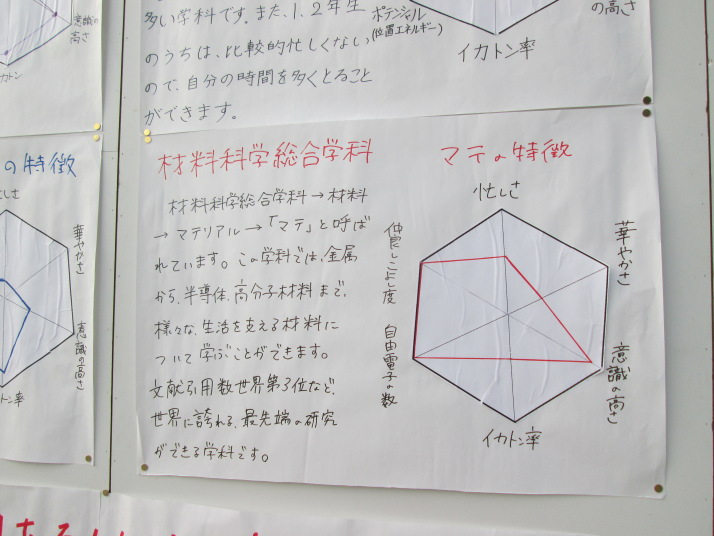 多い学科です。また、1、2年生
のうちは、比較的忙しくない
ので、自分の時間を多くとること
ができます。
ポテンシャル
(位置エネルギー)
イカトン率
の高さ
意識の
高さ
カトン
の特徴
忙しさ
華やかさ
意識の高さ
トン率
材料科学総合学科
材料科学総合学科→材料
→マテリアル→「マテ」と呼ば
れています。この学科では、金属
から、半導体、高分子材料まで、
様々な、生活を支える材料に
ついて学ぶことができます。
文献引用数世界第3位など、
世界に誇れる、最先端の研究
ができる学科です。
マテの特徴
忙しさ
華やかさ
意識の高さ
イカトン率
自由電子の数
仲良しこよし度